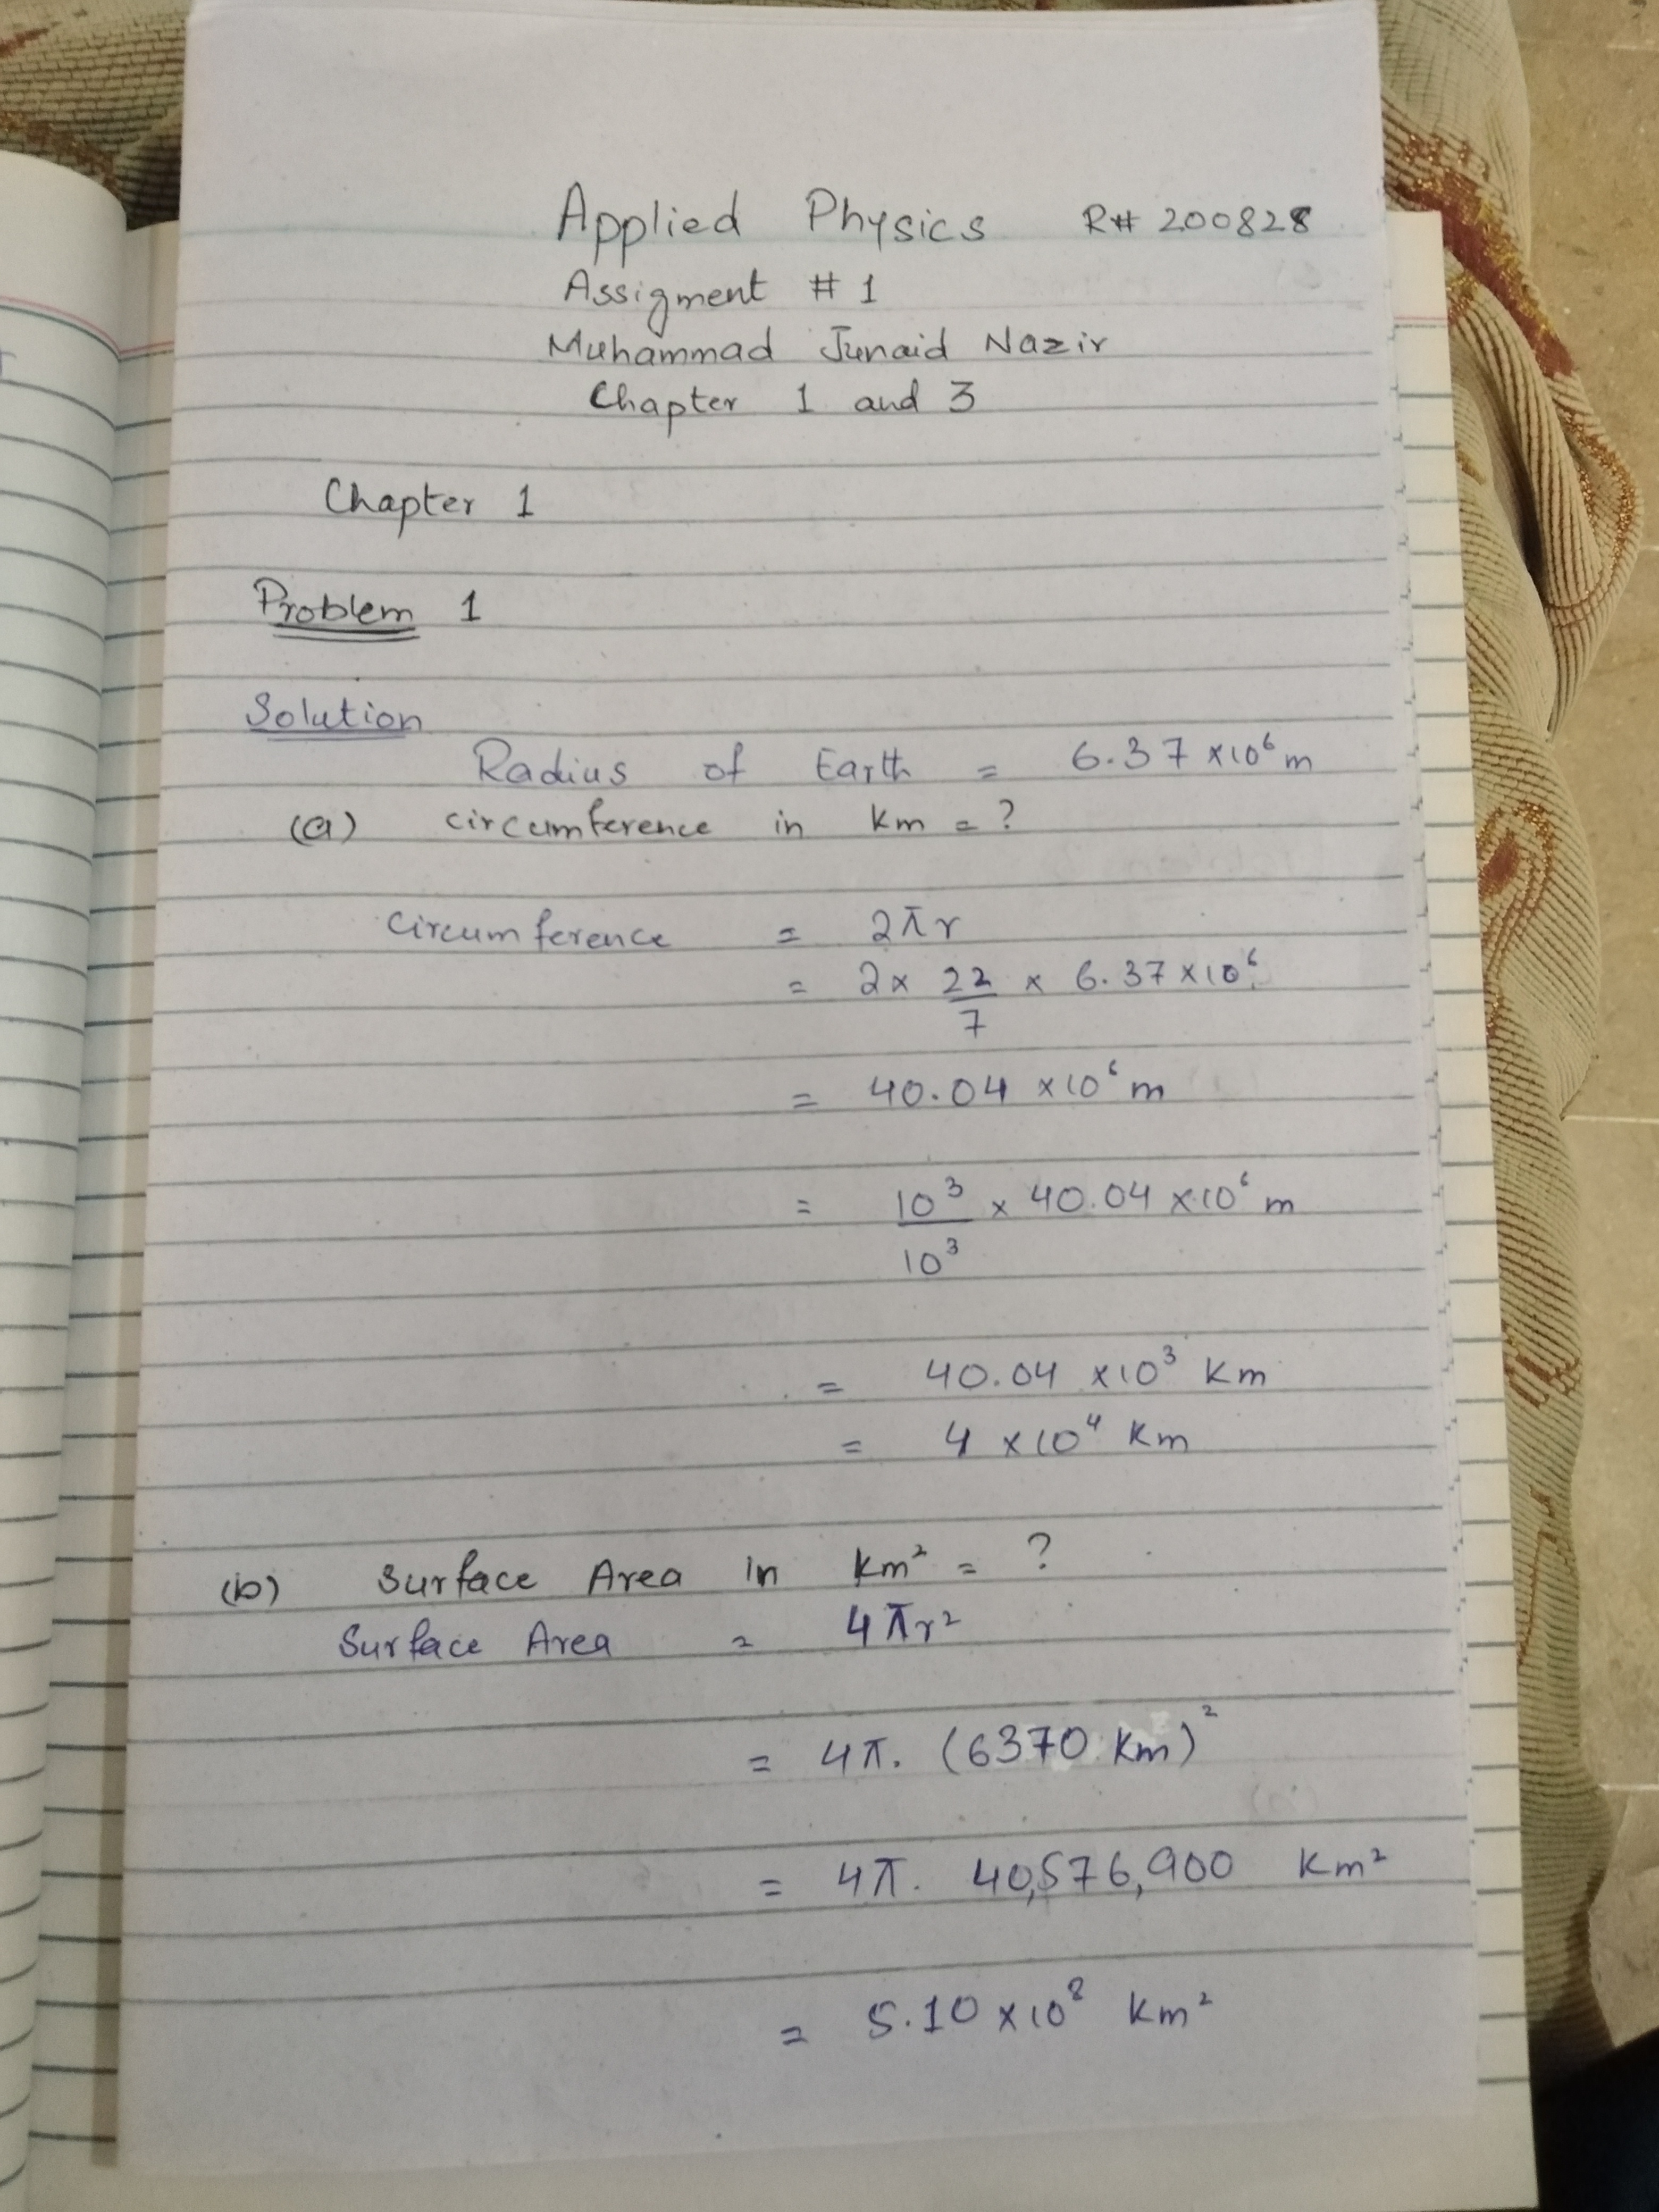 Applied Physics R# 200828
Assigment # 1
Muhammad Junaid Nazir
Chapter 1 and 3
Chapter 1
Problem 1
Solution
Radius of Earth = 6.37 × 10⁶ m
(a) circumference in km = ?
Circumference = 2πr
= 2 × 22/7 × 6.37 × 10⁶
= 40.04 × 10⁶ m
= 10³/10³ × 40.04 × 10⁶ m
= 40.04 × 10³ Km
= 4 × 10⁴ Km
(b) Surface Area in Km² = ?
Surface Area = 4πr²
= 4π. (6370 Km)²
= 4π. 40,576,900 Km²
= 5.10 × 10⁸ Km²